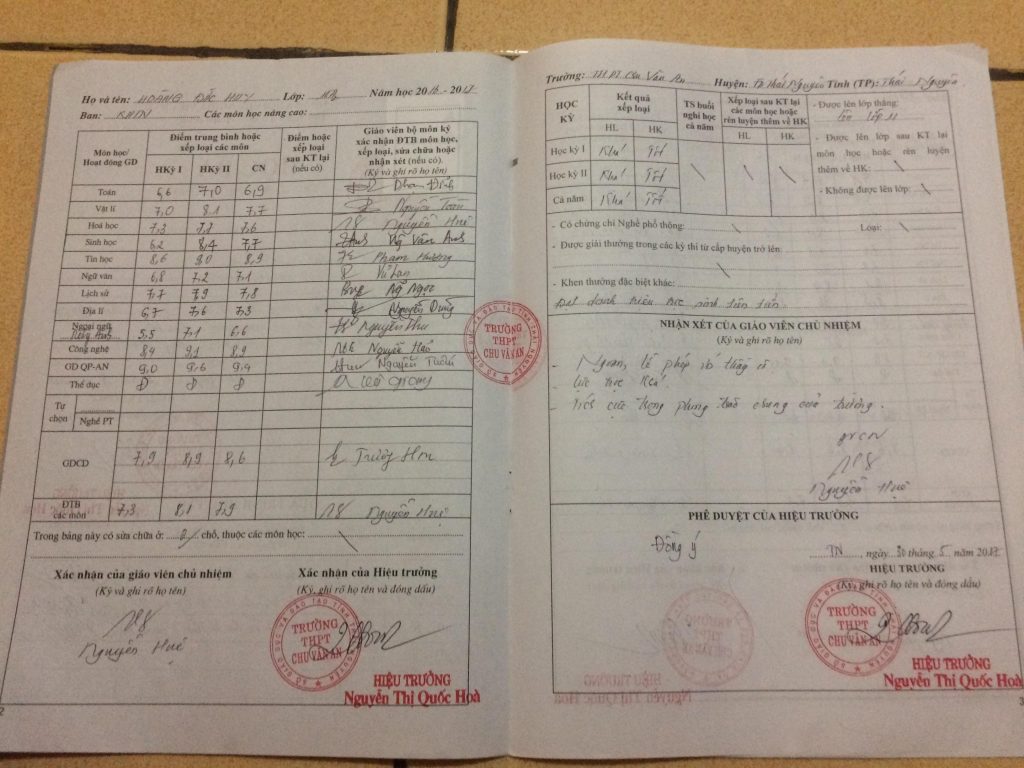 Họ và tên: HOÀNG ĐẮC HUY Lớp: Năm học 2016 - 2017
Ban: KHTN Các môn học nâng cao:
Môn học/ Hoạt động GD
Điểm trung bình hoặc xếp loại các môn
HKỳ I HKỳ II CN
Điểm hoặc xếp loại sau KT lại (nếu có)
Giáo viên bộ môn ký xác nhận ĐTB môn học, xếp loại, sửa chữa hoặc nhận xét (nếu có). (Ký và ghi rõ họ tên)
Toán 6,6 7,0 6,9
Vật lí 7,0 8,1 7,7 Nguyễn Toàn
Hoá học 7,3 7,7 7,6 Nguyễn Huệ
Sinh học 6,2 8,4 7,7 Vân Anh
Tin học 8,6 9,0 8,9 Phạm Hương
Ngữ văn 6,8 7,2 7,1 Vũ Lan
Lịch sử 7,7 7,9 7,8 Ng Ngọc
Địa lí 6,7 7,6 7,3 Nguyễn Dũng
Ngoại ngữ Tiếng Anh 5,5 7,1 6,6 Nguyễn Thu
Công nghệ 8,4 9,1 8,9 Nguyễn Hảo
GD QP-AN 9,0 9,6 9,4 Nguyễn
Thể dục Đ Đ Đ
Tự chọn
Nghề PT
GDCD 7,9 8,9 8,6 Trường
ĐTB các môn 7,3 8,1 7,9 Nguyễn Huệ
Trong bảng này có sửa chữa ở: chỗ, thuộc các môn học:
Xác nhận của giáo viên chủ nhiệm
(Ký và ghi rõ họ tên)
Nguyễn Huệ
Xác nhận của Hiệu trưởng
(Ký, ghi rõ họ tên và đóng dấu)
SỞ GIÁO DỤC VÀ ĐÀO TẠO TỈNH THÁI NGUYÊN
TRƯỜNG
THPT
CHU VĂN AN
HIỆU TRƯỞNG
Nguyễn Thị Quốc Hoà
2
SỞ GIÁO DỤC VÀ ĐÀO TẠO TỈNH THÁI NGUYÊN
TRƯỜNG
THPT
CHU VĂN AN
Trường: THPT Chu Văn An Huyện: Tp Thái Nguyên Tỉnh (TP): Thái Nguyên
HỌC KỲ
Kết quả xếp loại
HL HK
TS buổi nghỉ học cả năm
Xếp loại sau KT lại các môn học hoặc rèn luyện thêm về HK
HL HK
Học kỳ I Khá Tốt
Học kỳ II Khá Tốt
Cả năm Khá Tốt
- Được lên lớp thẳng:
Lên lớp 11
- Được lên lớp sau KT lại
môn học hoặc rèn luyện
thêm về HK:
- Không được lên lớp:
- Có chứng chỉ Nghề phổ thông: Loại:
- Được giải thưởng trong các kỳ thi từ cấp huyện trở lên:
- Khen thưởng đặc biệt khác:
Đạt danh hiệu học sinh tiên tiến.
NHẬN XÉT CỦA GIÁO VIÊN CHỦ NHIỆM
(Ký và ghi rõ họ tên)
- Ngoan, lễ phép
- Lực học khá.
- Tích cực trong phong trào chung của trường.
GVCN
Nguyễn Huệ
PHÊ DUYỆT CỦA HIỆU TRƯỞNG
Đồng ý
TN, ngày 30 tháng 5 năm 2017
HIỆU TRƯỞNG
(Ký, ghi rõ họ tên và đóng dấu)
SỞ GIÁO DỤC VÀ ĐÀO TẠO TỈNH THÁI NGUYÊN
TRƯỜNG
THPT
CHU VĂN AN
HIỆU TRƯỞNG
Nguyễn Thị Quốc Hoà
3